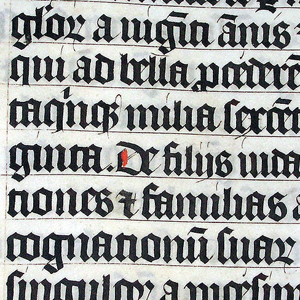 gloꝝ a uigīti ānis ⁊
qui ad bella ꝓcederēt
taqinqꝫ milia sexcēti
ginta. De filijs iuda
nones ⁊ familias a
cognationū suaꝝ
singuloꝝ a uicesim